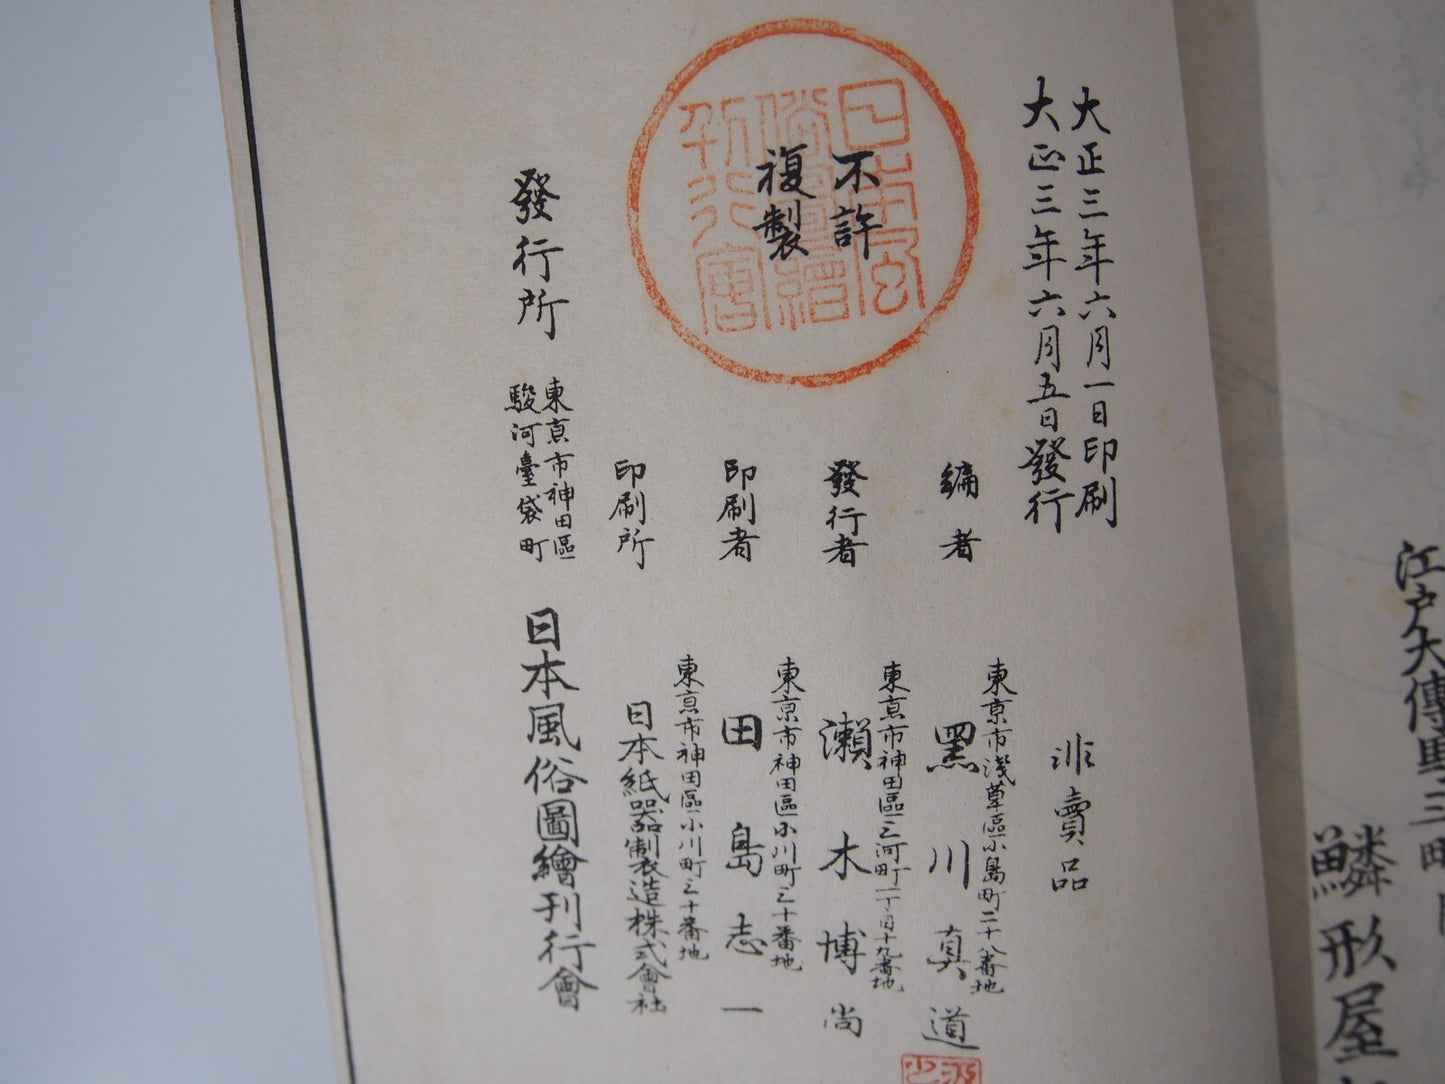 江戸大傳馬三町目
鱗形屋
大正三年六月一日印刷
大正三年六月五日發行
非賣品
不許
複製
日本風
俗圖繪
刊行會
編者
東京市淺草區小島町二十八番地
黑川真道
發行者
東京市神田區三河町一丁目十九番地
瀨木博尚
印刷者
東京市神田區小川町三十番地
田島志一
印刷所
東京市神田區小川町三十番地
日本紙器製造株式會社
發行所
東京市神田區
駿河臺袋町
日本風俗圖繪刊行會